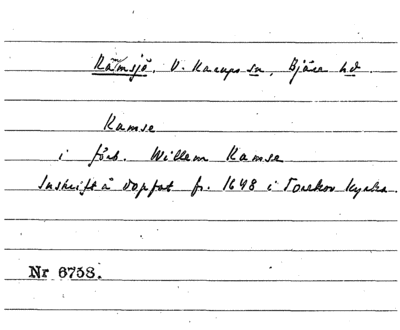 Rämsjö, V. Karups sn, Bjäre hd.
Ramse
i förb. Willem Ramse
Inskrift å dopfat fr. 1648 i Torekov kyrka.
Nr 6738.